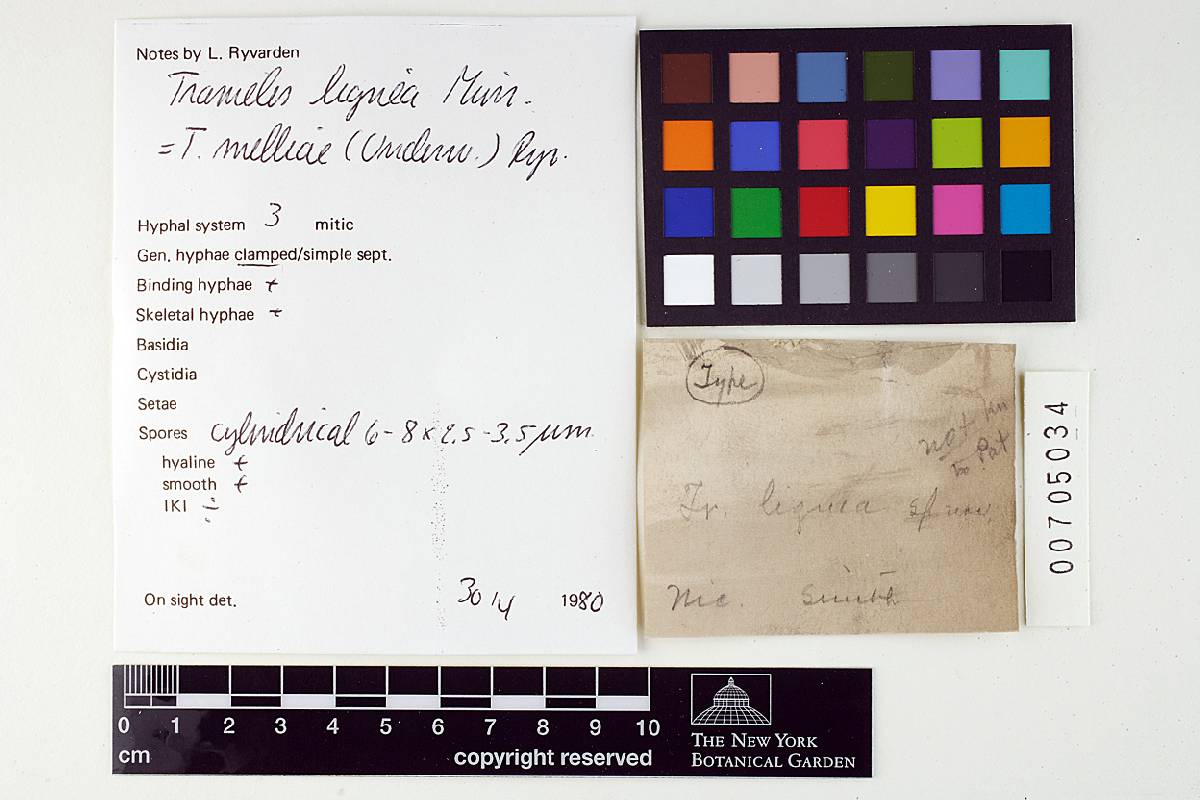 Notes by L. Ryvarden
Trametes lignea Murr.
= T. melliae (Underw.) Ryv.
Hyphal system 3 mitic
Gen. hyphae clamped/simple sept.
Binding hyphae +
Skeletal hyphae +
Basidia
Cystidia
Setae
Spores cylindrical 6-8 x 2.5-3.5 µm
hyaline +
smooth +
IKI ÷
On sight det. 30/4 1980
Type
not in
to Pat
Tr. lignea sp nov.
Nic. Smith
00705034
0 1 2 3 4 5 6 7 8 9 10
cm
copyright reserved
THE NEW YORK
BOTANICAL GARDEN